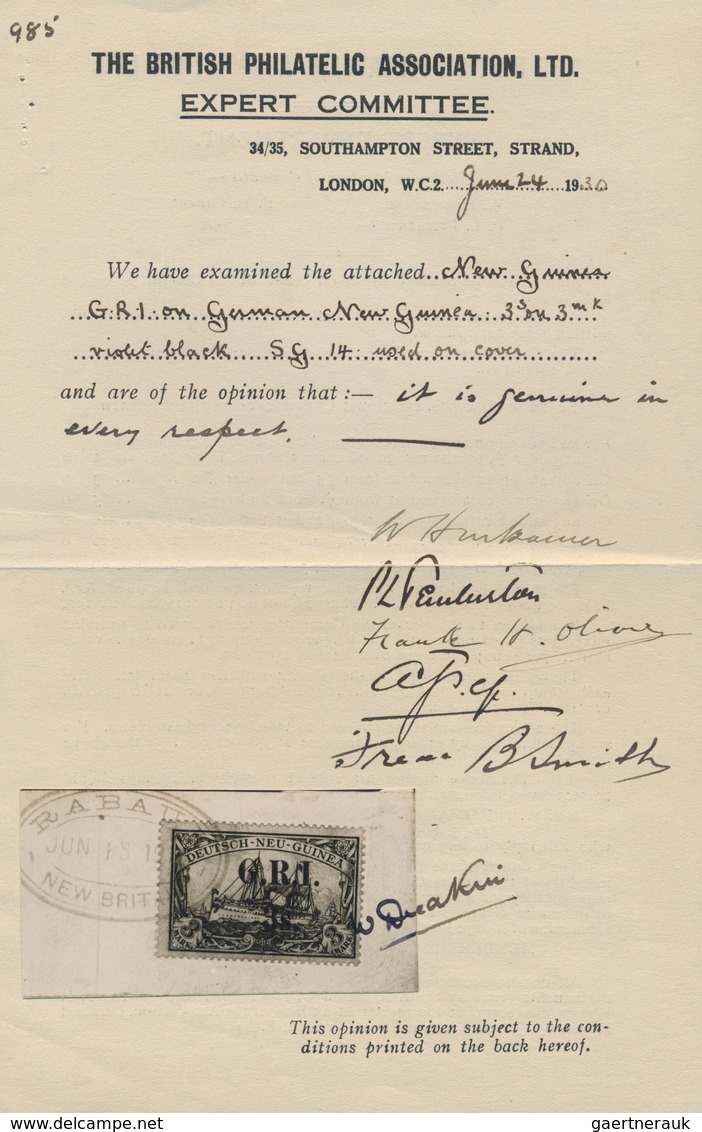 985
THE BRITISH PHILATELIC ASSOCIATION, LTD.
EXPERT COMMITTEE.
34/35, SOUTHAMPTON STREET, STRAND,
LONDON, W.C.2. June 24 1930
We have examined the attached New Guinea
G.R.I. on German New Guinea 3s on 3mk
violet black SG 14 used on cover
and are of the opinion that :— it is genuine in
every respect.
Frank H. Oliver
B Smith
RABAU
JUN 18 1
NEW BRIT
DEUTSCH-NEU-GUINEA
G.R.I.
3s
3 MARK 3 MARK
This opinion is given subject to the con-
ditions printed on the back hereof.
www.delcampe.net
gaertnerauk